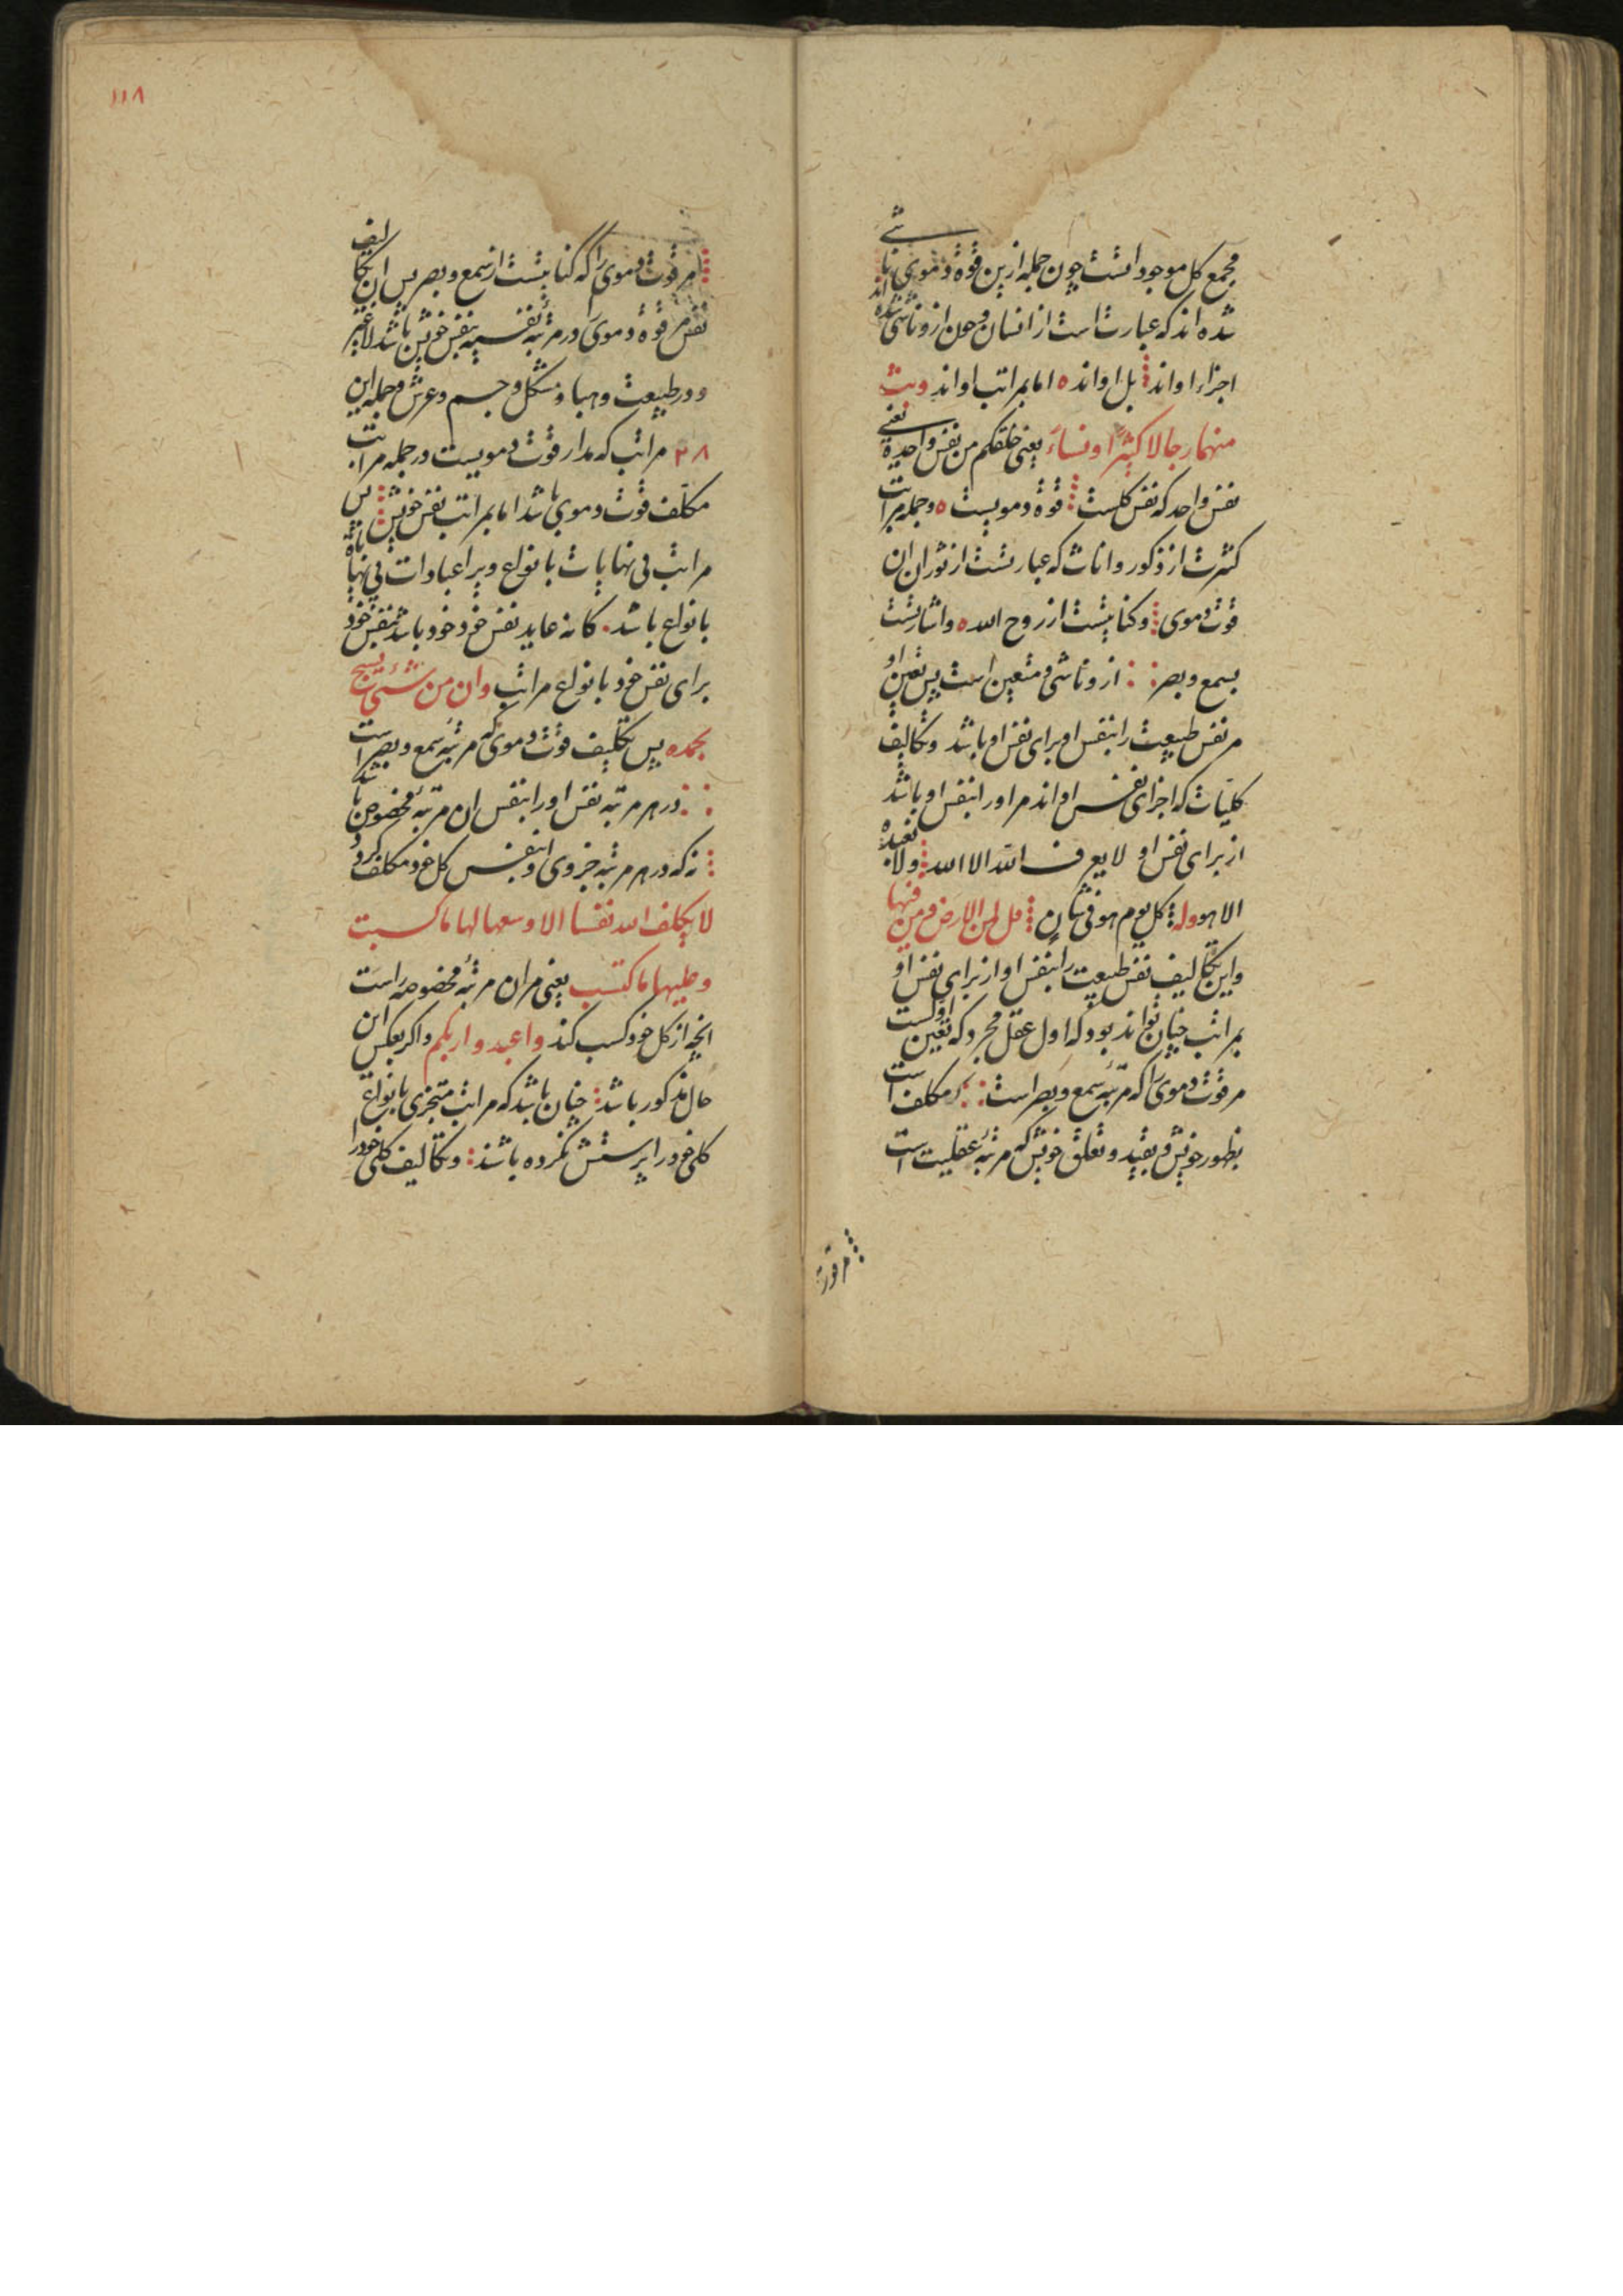 مجمع کل موجود است چون جمله ازین قوة دموی ناشی
شده اند که عبارت است از انسان و چون ازو ناشی شده اند
اجزاء او اند بل او انده اما بمراتب او اند وبث
منهما رجالا کثیرا ونساء یعنی خلقکم من نفس واحدة یعنی
نفس واحد که نفس کلست قوة دمویست ه وجمله مراتب
کثرت از ذکور واناث که عبارتست از نوران ان
قوت دموی وکنایتست از روح الله ه واشارتست
بسمع وبصر ازو ناشی ومتعین است پس تعین او
مر نفس طبیعت را بنفس او برای نفس او باشد وتکالیف
کلیات که اجزای نفس او اند مر اورا بنفس او باشد
از برای نفس او لا یعرف الله الا الله ولا نعبده
الا هو وله کل یوم هو فی شان قل لمن الارض ومن فیها
واین تکالیف نفس طبیعت را بنفس او از برای نفس او
بمراتب چنان تواند بود که اول عقل مجرد که تعین اولست
مر قوت دموی را که مرتبه سمع وبصر است مکلف است
بظهور خویش وبقید وتعلق خویش که مرتبه عقلیت است
مر قوة
۱۱۸
مر قوت دموی را که کنایتست از سمع وبصر پس ان تکالیف
نفس مر قوة دموی را در مرتبه نفسیه بنفس خویش باشد لا غیر
ودر طبیعت وهبا وشکل وجسم وعرش وجمله این
۲۸ مراتب که مدار قوت دمویست در جمله مراتب
مکلف قوت دموی باشد اما بمراتب نفس خویش پس
مراتب بی نهایات بانواع ویرا عبادات بی نهایة
بانواع باشد کانه عابد نفس خود خود باشد بنفس خود
برای نفس خود بانواع مراتب وان من شیء یسبح
بحمده پس تکلیف قوت دموی که مرتبه سمع وبصر است
در هر مرتبه نفس اورا بنفس ان مرتبه مخصوص باشد
نه که در هر مرتبه جزوی او بنفس کل خود مکلف کردد
لا یکلف الله نفسا الا وسعها لها ما کسبت
وعلیها ما کتسب یعنی مر ان مرتبه مخصوصه راست
انچه از کل خود کسب کند واعبدوا ربکم واکر بعکس این
حال مذکور باشد چنان باشد که مراتب متجزی بانواع
کلی خود را پرستش نکرده باشند وتکالیف کلی خود را